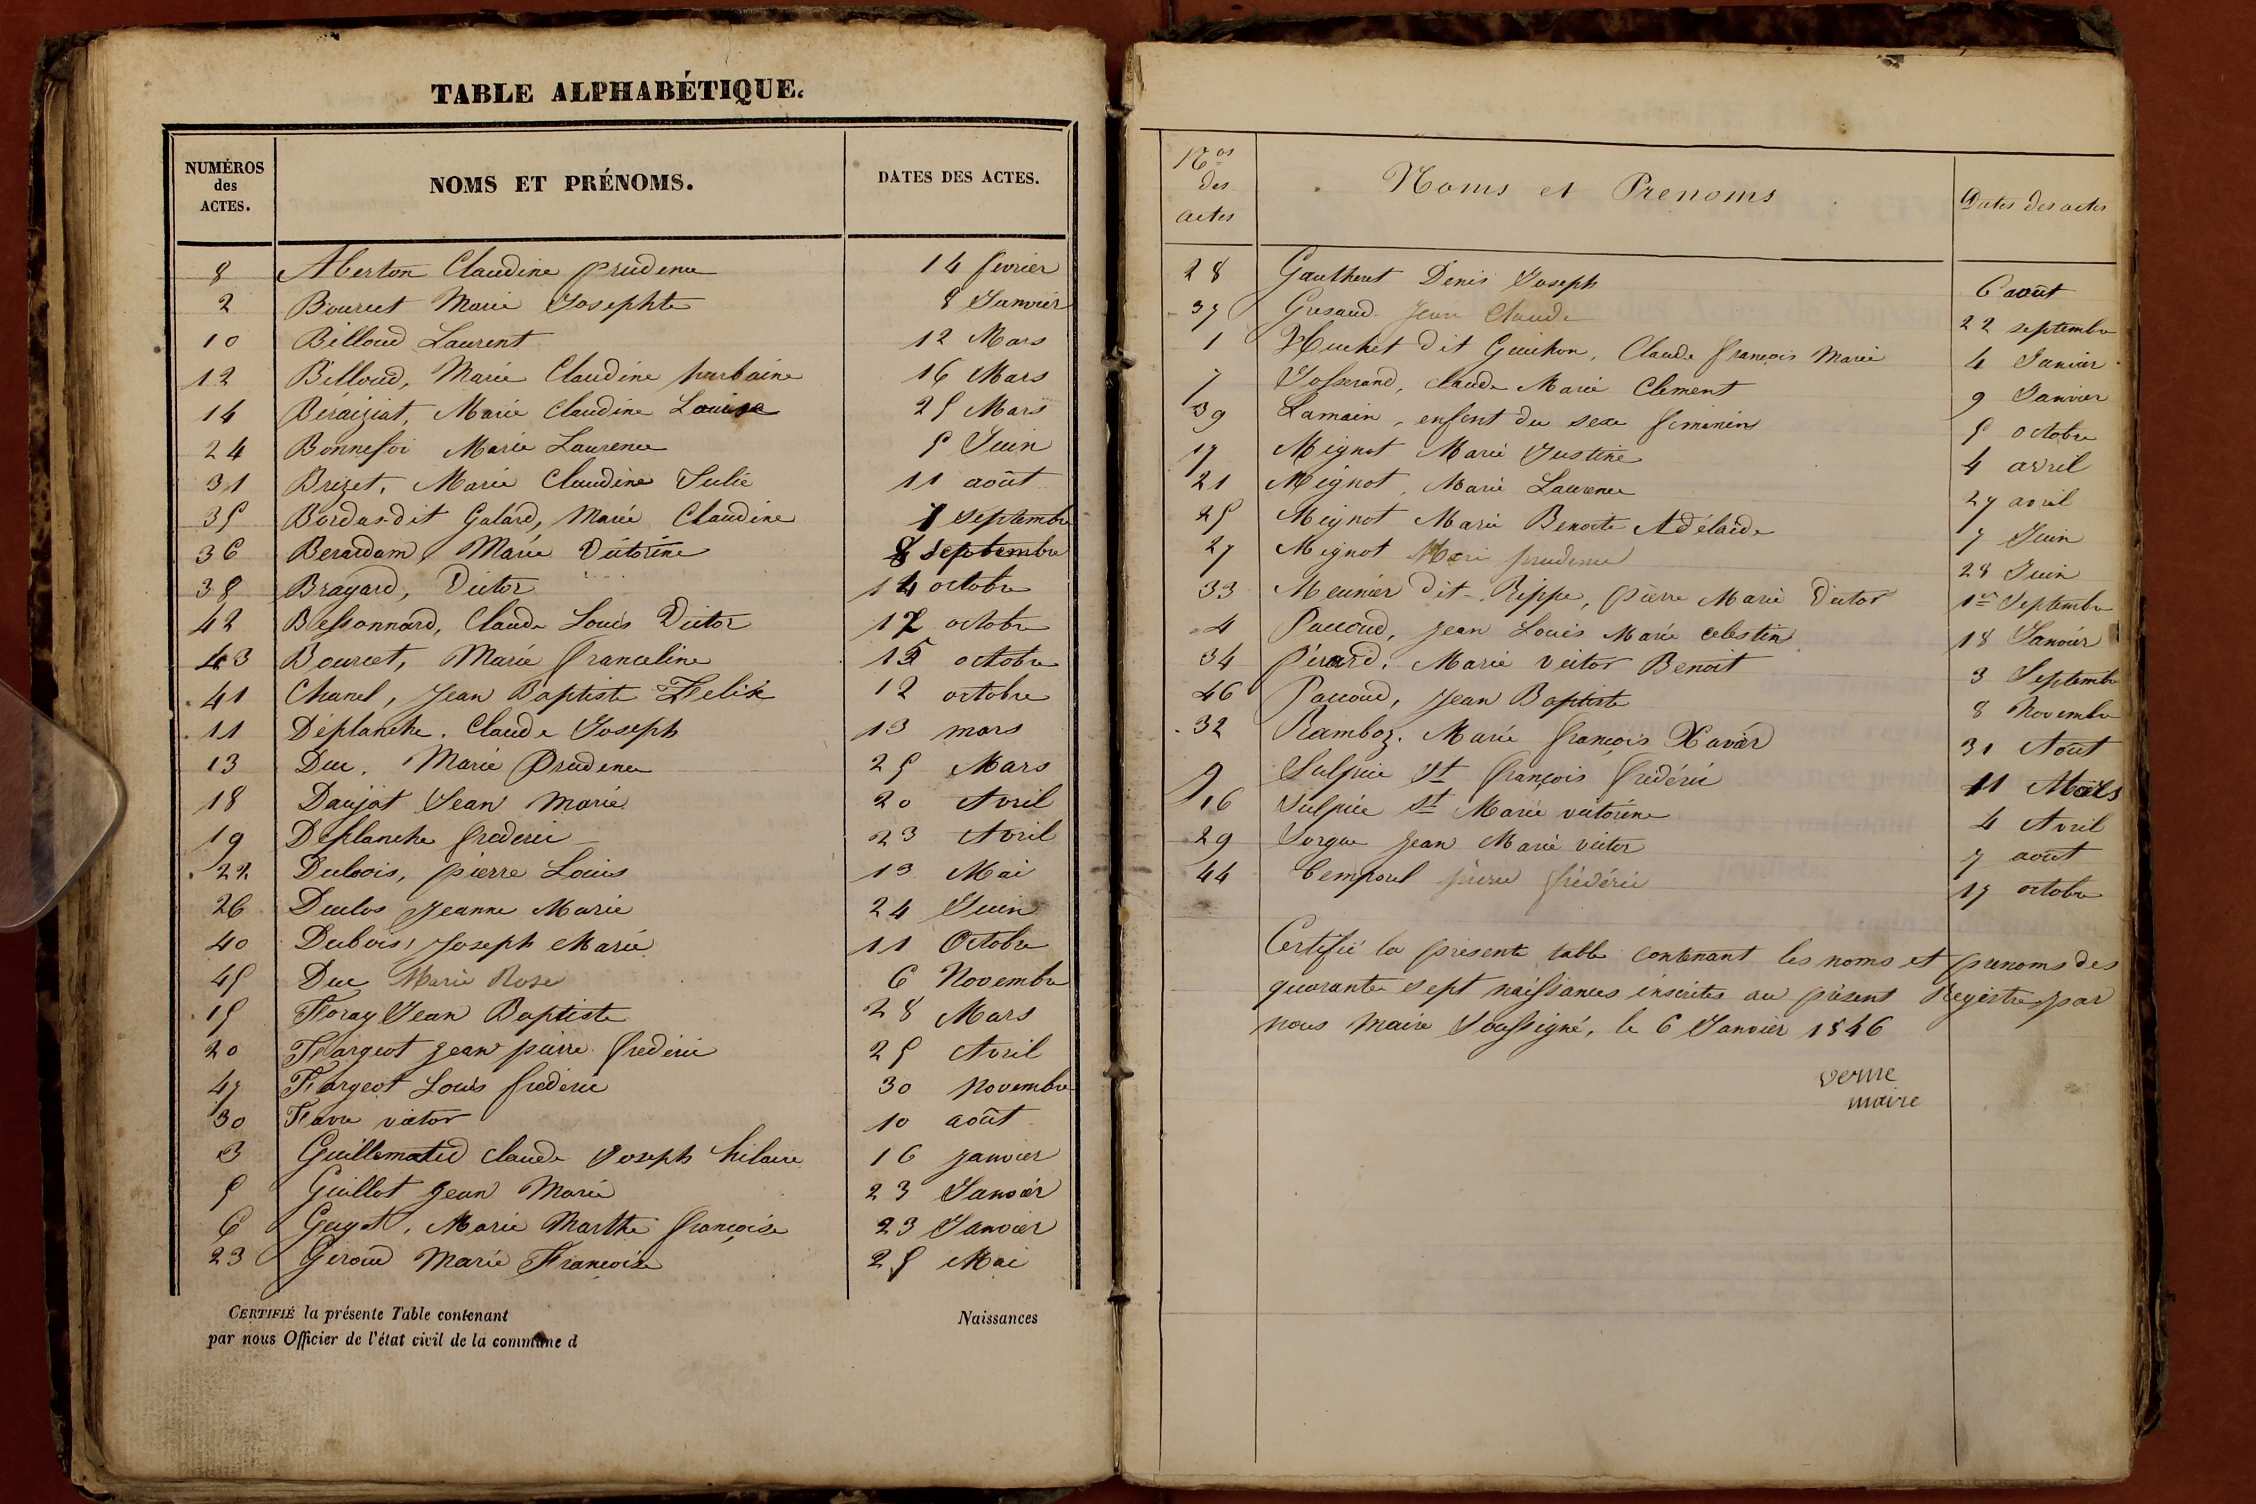 TABLE ALPHABÉTIQUE.
NUMÉROS des ACTES. NOMS ET PRÉNOMS. DATES DES ACTES.
8 Aberton Claudine prudence 14 fevrier
2 Bourcet Marie Josephte 8 Janvier
10 Billoud Laurent 12 Mars
12 Billoud, Marie Claudine 16 Mars
14 Béraiziat, Marie Claudine Louise 25 Mars
24 Bonnefoi Marie Laurence 5 Juin
31 Brizet, Marie Claudine Julie 11 août
35 Bordas-dit Galard, Marie Claudine 7 septembre
36 Berardam, Marie Victorine 8 septembre
38 Brayard, Victor octobre
42 Bessonnard, Claude Louis Victor octobre
43 Bourcet, Marie franceline 15 octobre
41 Chanel, Jean Baptiste Felix 12 octobre
11 Déplanche. Claude Joseph 13 mars
13 Duc. Marie Prudence 25 Mars
18 Daujat Jean Marie 20 Avril
19 Déplanche frederic 23 Avril
22 Dubois, pierre Louis 13 Mai
26 Duclos Jeanne Marie 24 Juin
40 Dubois, Joseph Marie 11 Octobre
45 Duc Marie Rose 6 Novembre
15 Foray Jean Baptiste 28 Mars
20 Fargeot Jean pierre frederic 25 Avril
47 Fargeot Louis frederic 30 Novembre
30 Favre victor 10 août
3 Guillematid Claude Joseph hilaire 16 janvier
5 Guillot Jean Marie 23 Janvier
6 Guyot, Marie Marthe françoise 23 Janvier
23 Geroud Marie Françoise 25 Mai
CERTIFIÉ la présente Table contenant Naissances
par nous Officier de l'état civil de la commune d
Nos des actes Noms et Prenoms Dates des actes
28 Gautheret Denis Joseph 6 août
37 Gresaud Jean Claude 22 septembre
1 Huchet dit Guichon, Claude françois Marie 4 Janvier
7 Josserand, claude Marie Clement 9 Janvier
39 Lamain, enfent du sexe feminin 5 octobre
17 Mignot Marie Justine 4 avril
21 Mignot, Marie Laurence 27 avril
25 Mignot Marie Benoite Adélaïde 7 Juin
27 Mignot Marie prudence 28 Juin
33 Meunier dit-Rippe, pierre Marie Victor 1er Septembre
4 Paccoud, Jean Louis Marie celestin 18 Janvier
34 Pérard. Marie victor Benoit 3 Septembre
46 Paccoud, Jean Baptiste 8 Novembre
32 Ramboz. Marie françois Xavier 31 Août
9 Sulpice St françois frédéric 11 Mars
16 Sulpice St Marie victorine 4 Avril
29 Sorgue Jean Marie victor 7 août
44 Temporel pierre frédéric 17 octobre
Certifié la présente table contenant les noms et prenoms des
quarante sept naissances inscrites au présent Registre par
nous Maire Soussigné, le 6 Janvier 1846
verne
maire